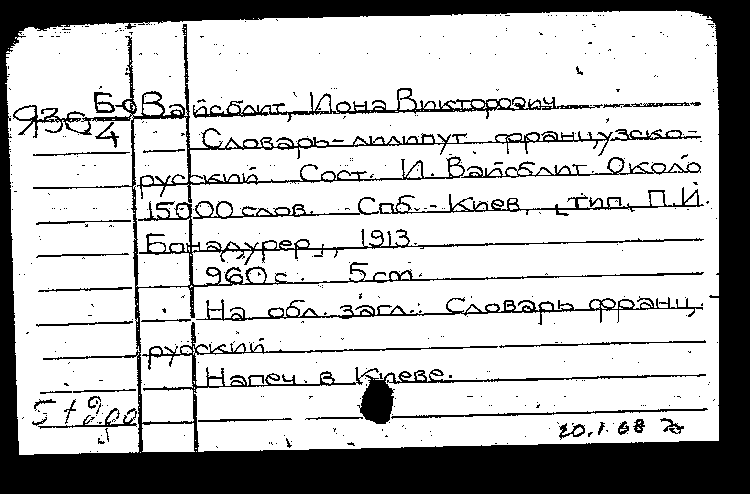 Я30 Б-о/4 Вайсблит, Иона Викторович
Словарь-лилипут французско-
русский. Сост. И. Вайсблит. Около
15000 слов. Спб. - Киев, [тип. П.И.
Бонадурер], 1913.
960 с. 5 ст.
На обл. загл.: Словарь франц.
русский.
Напеч. в Киеве.
20.1.68